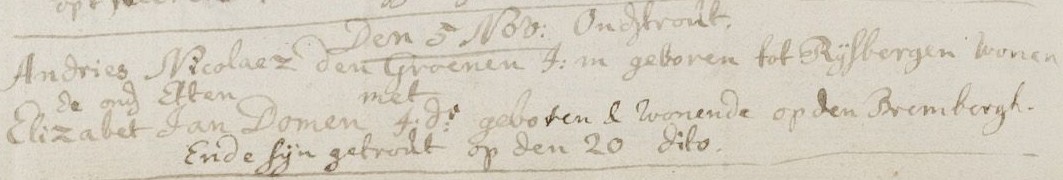 Den 5 Nov: Ondtrout.
Andries Nicolaez den Groenen J: m geboren tot Rijsbergen wonen
de ond Etten met
Elizabet Jan Domen J: d: geboren & wonende op den Brembergh.
Ende sijn getrout op den 20 dito.